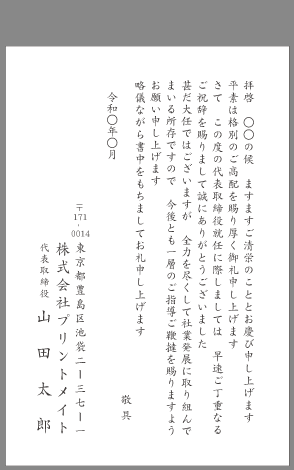 拝啓　〇〇の候　ますますご清栄のこととお慶び申し上げます
平素は格別のご高配を賜り厚く御礼申し上げます
さて　この度の代表取締役就任に際しましては　早速ご丁重なる
ご祝辞を賜りまして誠にありがとうございました
甚だ大任ではございますが　全力を尽くして社業発展に取り組んで
まいる所存ですので　今後とも一層のご指導ご鞭撻を賜りますよう
お願い申し上げます
略儀ながら書中をもちましてお礼申し上げます
敬具
令和〇年〇月
〒171-0014
東京都豊島区池袋二ー三七ー一
株式会社プリントメイト
代表取締役　山田太郎